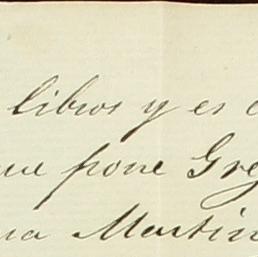 libros y es
que pone Gre
na Martin